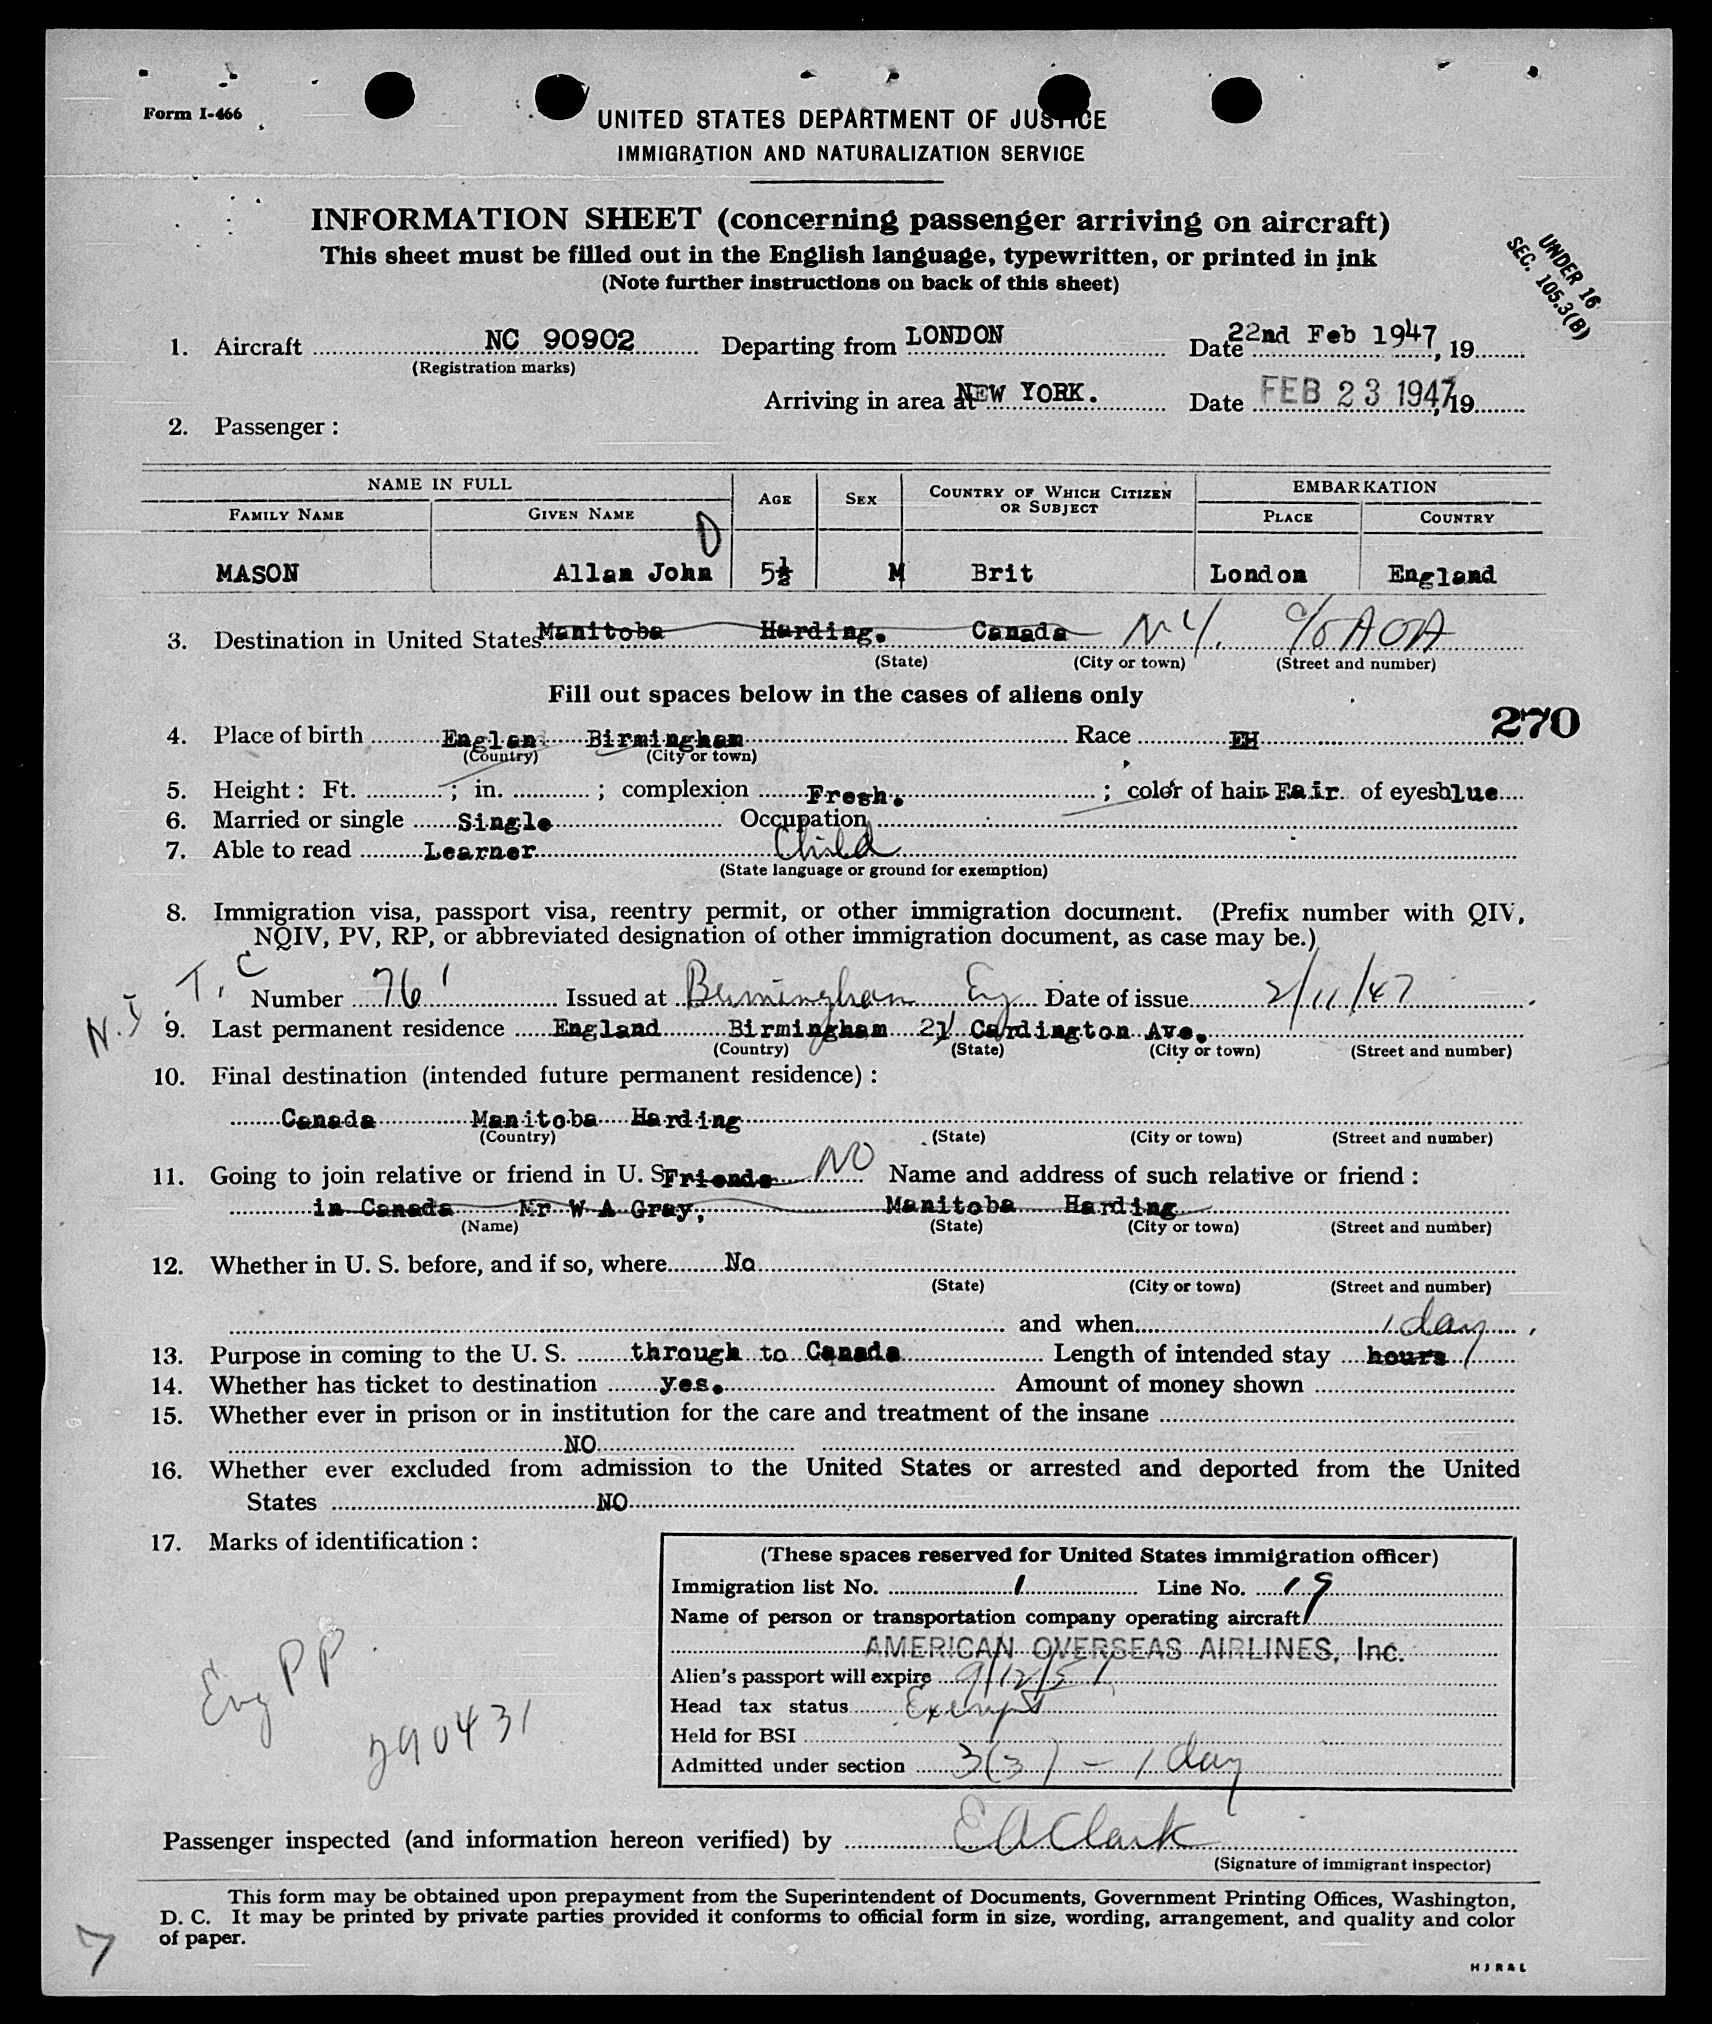 Form I-466
UNITED STATES DEPARTMENT OF JUSTICE
IMMIGRATION AND NATURALIZATION SERVICE
INFORMATION SHEET (concerning passenger arriving on aircraft)
This sheet must be filled out in the English language, typewritten, or printed in ink
(Note further instructions on back of this sheet)
UNDER 16
SEC. 105.3(B)
1. Aircraft NC 90902 Departing from LONDON Date 22nd Feb 1947, 19
(Registration marks)
Arriving in area at NEW YORK. Date FEB 23 1947, 19
2. Passenger:
NAME IN FULL AGE SEX COUNTRY OF WHICH CITIZEN OR SUBJECT EMBARKATION
FAMILY NAME GIVEN NAME PLACE COUNTRY
MASON Allan John 5½ M Brit London England
3. Destination in United States Manitoba Harding. Canada N Y. c/o AOA
(State) (City or town) (Street and number)
Fill out spaces below in the cases of aliens only
270
4. Place of birth England Birmingham Race EH
(Country) (City or town)
5. Height: Ft. ; in. ; complexion Fresh. ; color of hair Fair of eyes blue
6. Married or single Single Occupation
7. Able to read Learner Child
(State language or ground for exemption)
8. Immigration visa, passport visa, reentry permit, or other immigration document. (Prefix number with QIV,
NQIV, PV, RP, or abbreviated designation of other immigration document, as case may be.)
T.C Number 761 Issued at Birmingham Eng Date of issue 2/11/47
9. Last permanent residence England Birmingham 21 Cardington Ave.
(Country) (State) (City or town) (Street and number)
10. Final destination (intended future permanent residence):
Canada Manitoba Harding
(Country) (State) (City or town) (Street and number)
11. Going to join relative or friend in U. S. Friends NO Name and address of such relative or friend:
in Canada Mr W A Gray, Manitoba Harding
(Name) (State) (City or town) (Street and number)
12. Whether in U. S. before, and if so, where No
(State) (City or town) (Street and number)
and when
13. Purpose in coming to the U. S. through to Canada Length of intended stay hours 1 day
14. Whether has ticket to destination yes. Amount of money shown
15. Whether ever in prison or in institution for the care and treatment of the insane
NO
16. Whether ever excluded from admission to the United States or arrested and deported from the United
States NO
17. Marks of identification:
(These spaces reserved for United States immigration officer)
Immigration list No. 1 Line No. 19
Name of person or transportation company operating aircraft
AMERICAN OVERSEAS AIRLINES, Inc.
Alien's passport will expire 9/12/51
Head tax status Exempt
Held for BSI
Admitted under section 3(3) - 1 day
Eng PP
290431
Passenger inspected (and information hereon verified) by E A Clark
(Signature of immigrant inspector)
This form may be obtained upon prepayment from the Superintendent of Documents, Government Printing Offices, Washington,
D. C. It may be printed by private parties provided it conforms to official form in size, wording, arrangement, and quality and color
of paper.
7
HJR&L